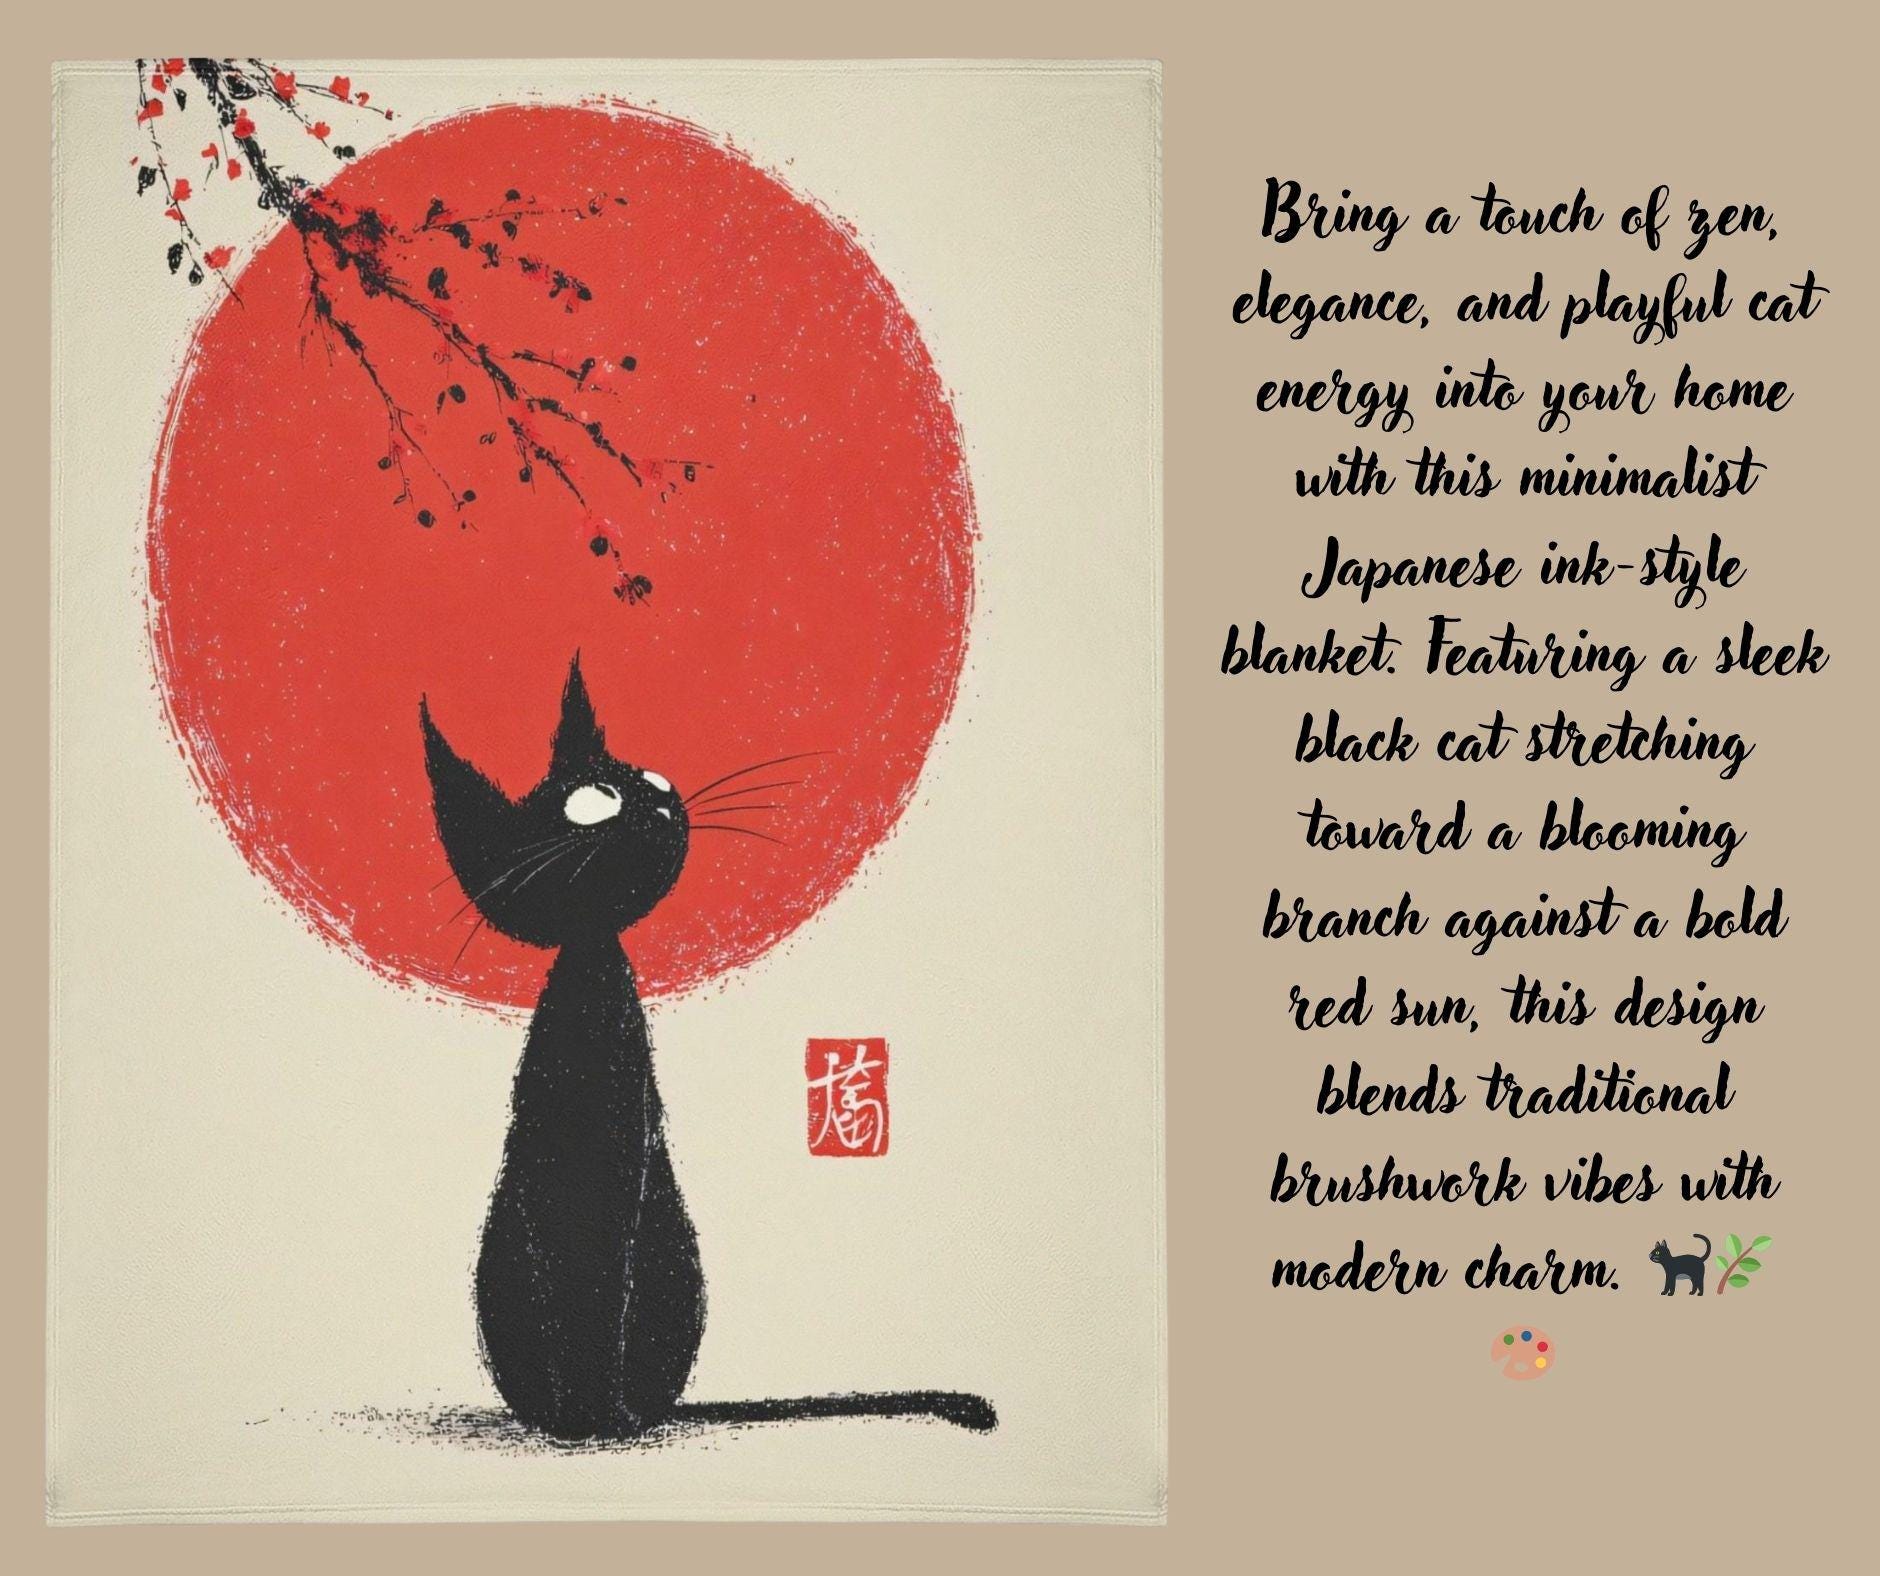 Bring a touch of zen,
elegance, and playful cat
energy into your home
with this minimalist
Japanese ink-style
blanket. Featuring a sleek
black cat stretching
toward a blooming
branch against a bold
red sun, this design
blends traditional
brushwork vibes with
modern charm. 🐈‍⬛🌿
🎨